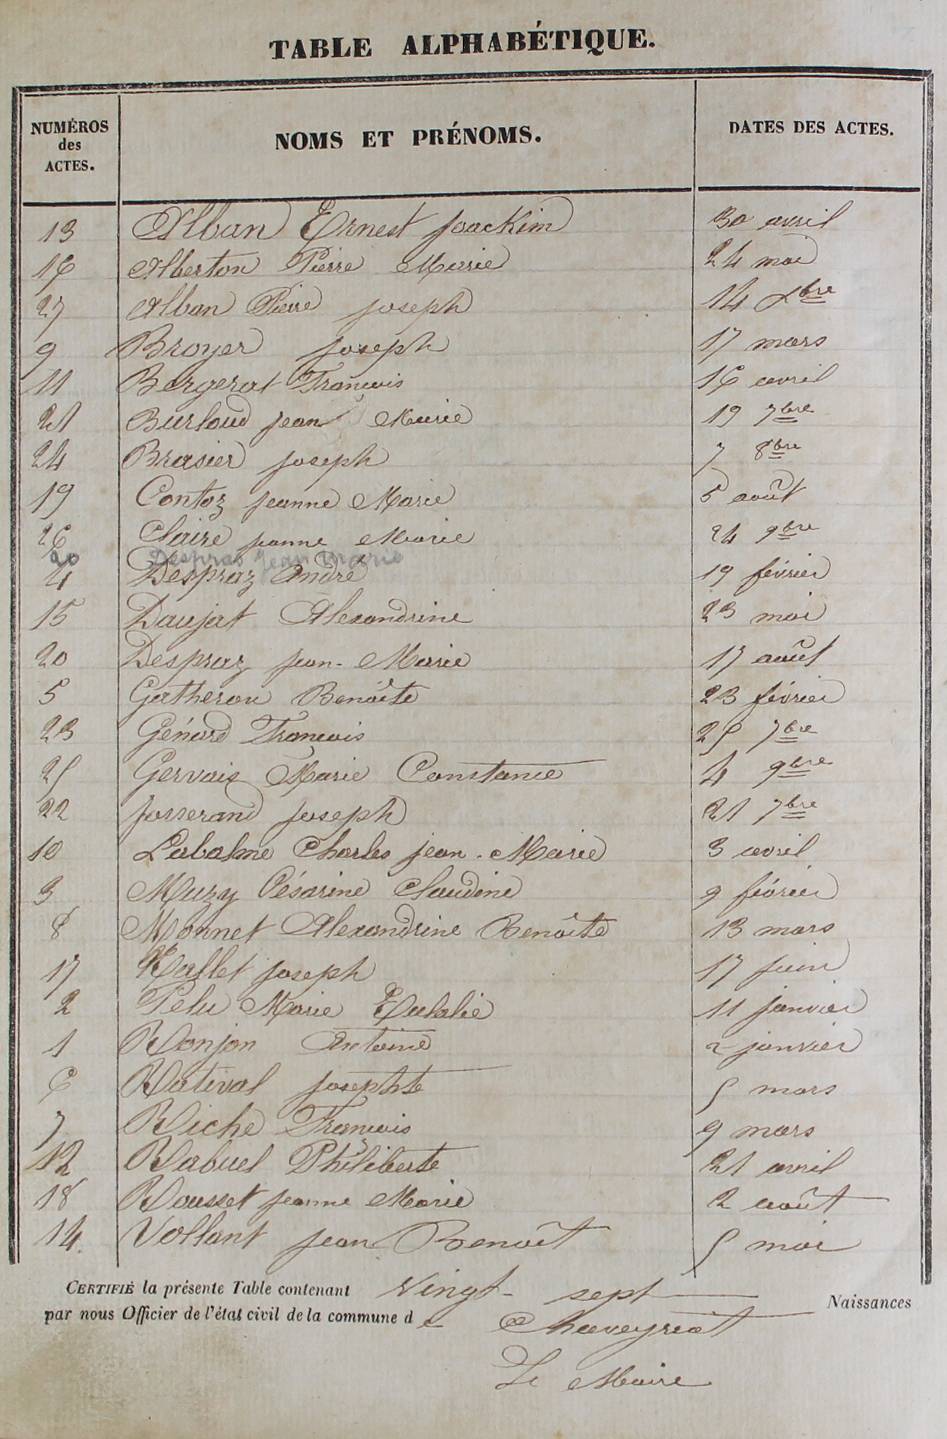 TABLE ALPHABÉTIQUE.
NUMÉROS des ACTES. NOMS ET PRÉNOMS. DATES DES ACTES.
13 Alban Ernest Joackim 30 avril
16 Alberton Pierre Marie 24 mai
27 Alban Pierre Joseph 14 Xbre
9 Broyer Joseph 17 mars
11 Bergerat François 16 avril
21 Burloud Jean Marie 19 7bre
24 Brasier Joseph 7 8bre
19 Contoz Jeanne Marie 5 août
26 Claire Jeanne Marie 24 9bre
20 Despras Jean Marie
4 Despraz André 19 février
15 Daujat Alexandrine 23 mai
20 Despraz Jean-Marie 17 août
5 Gatheron Benoîte 23 février
23 Génard François 25 7bre
25 Gervais Marie Constance 4 9bre
22 Josserand Joseph 21 7bre
10 Labalme Charles Jean-Marie 3 avril
3 Muzy Césarine Claudine 9 février
8 Monnet Alexandrine Benoîte 13 mars
17 Nallet Joseph 17 juin
2 Pelu Marie Eulalie 11 janvier
1 Ronjon Antoine 2 janvier
6 Rativat Josephte 5 mars
7 Riche François 9 mars
12 Rabuel Philiberte 21 avril
18 Rousset Jeanne Marie 2 août
14 Vollant Jean Benoît 5 mai
CERTIFIÉ la présente Table contenant Vingt-sept Naissances
par nous Officier de l'état civil de la commune de Chaveyriat
Le Maire